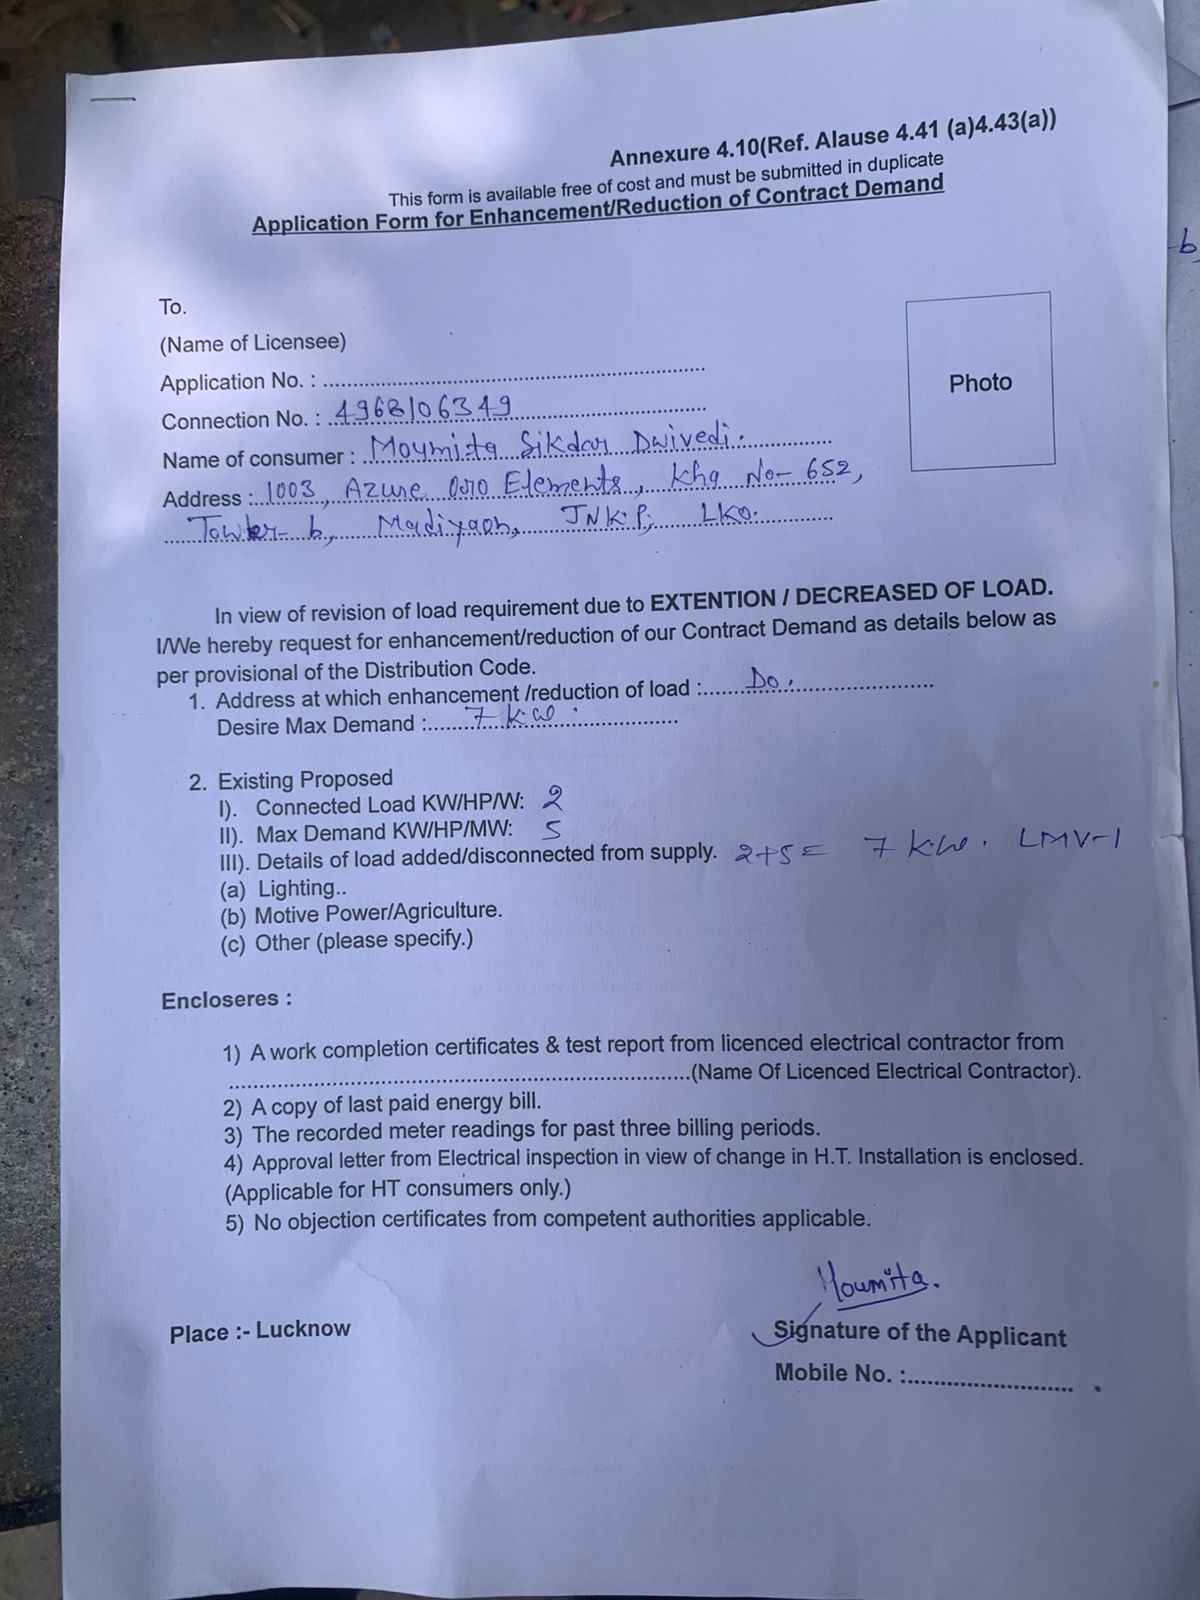 Annexure 4.10(Ref. Alause 4.41 (a)4.43(a))
This form is available free of cost and must be submitted in duplicate
Application Form for Enhancement/Reduction of Contract Demand
To.
(Name of Licensee)
Application No. : ..........
Photo
Connection No. : 4968106349
Name of consumer : Moumita Sikdar Dwivedi.
Address : 1003, Azure Oro Elements, Kha No- 652,
Tower- b, Madiyaon, JNKP, LKO.
b,
In view of revision of load requirement due to EXTENTION / DECREASED OF LOAD.
I/We hereby request for enhancement/reduction of our Contract Demand as details below as
per provisional of the Distribution Code.
1. Address at which enhancement /reduction of load : Do.
Desire Max Demand : 7 kw.
2. Existing Proposed
I). Connected Load KW/HP/W: 2
II). Max Demand KW/HP/MW: 5
III). Details of load added/disconnected from supply. 2+5= 7 kw. LMV-1
(a) Lighting..
(b) Motive Power/Agriculture.
(c) Other (please specify.)
Encloseres :
1) A work completion certificates & test report from licenced electrical contractor from
..........(Name Of Licenced Electrical Contractor).
2) A copy of last paid energy bill.
3) The recorded meter readings for past three billing periods.
4) Approval letter from Electrical inspection in view of change in H.T. Installation is enclosed.
(Applicable for HT consumers only.)
5) No objection certificates from competent authorities applicable.
Moumita.
Place :- Lucknow
Signature of the Applicant
Mobile No. :..........